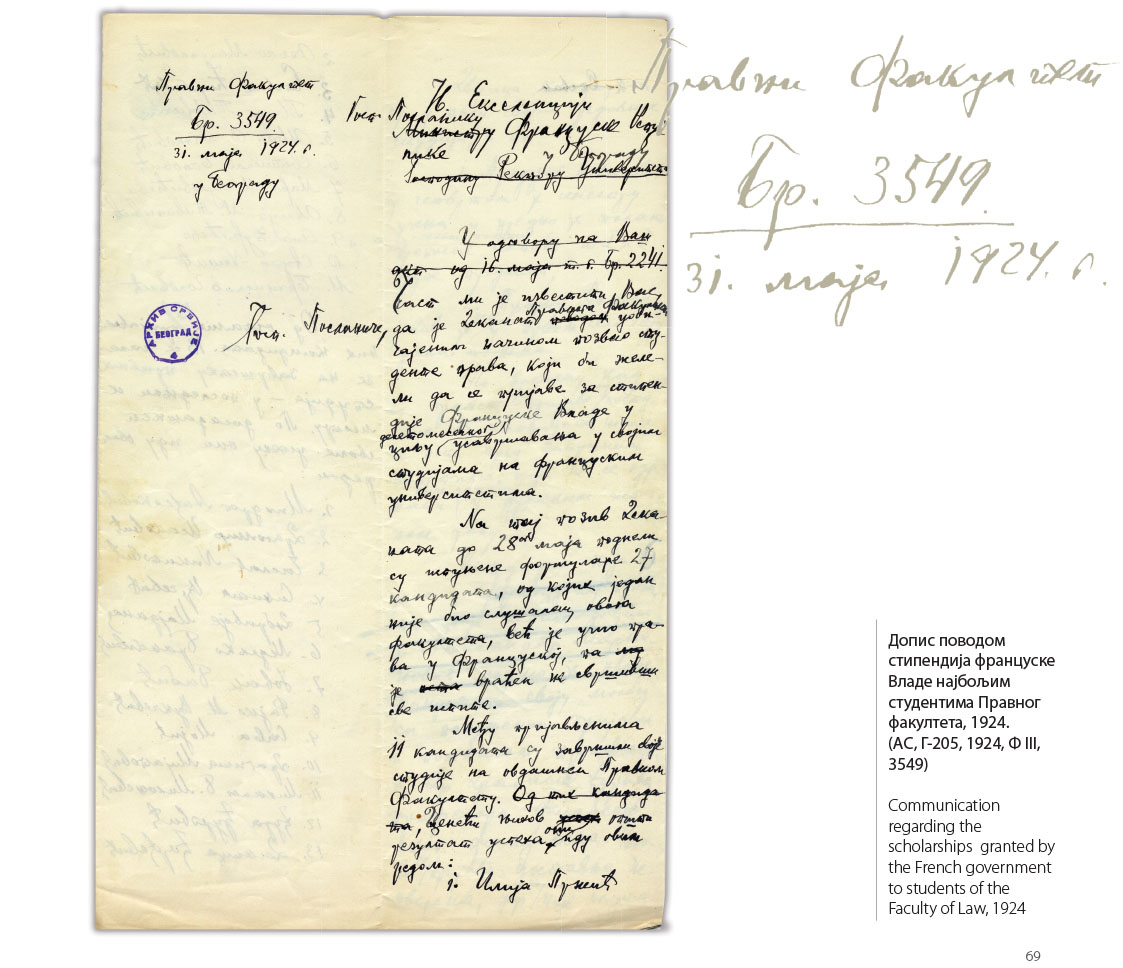 Правни Факултет
Бр. 3549.
31. маја 1924. г.
у Београду
Њ. Екселенцији
Госп. Посланику
Министру Француске Репу
блике у Београду
Господину Ректору Универзитета
У одговору на Ваш
акт од 16. маја т. г. Бр. 2241.
Госп. Посланиче,
Част ми је известити Вас,
да је Деканат Правног Факултета уоби-
чајеним начином позвао сту-
денте права, који би желе-
ли да се пријаве за стипен-
дије Француске Владе у
циљу деветомесечног усавршавања у својим
студијама на француским
университетима.
На тај позив Дека-
ната до 28ог маја поднели
су испуњене формуларе 27
кандидата, од којих један
није био слушалац овога
факултета, већ је учио пра-
ва у Француској, па
је враћен не свршивши
све испите.
Међу пријављенима
11 кандидата су завршили своје
студије на овдашњем Правном
Факултету. Од тих кандида
та, Ценећи њихов општи
резултат успеха они иду овим
редом:
1. Илија Пржић
АРХИВ СРБИЈЕ
БЕОГРАД
4
Правни Факултет
Бр. 3549.
31. маја 1924. г.
Допис поводом
стипендија француске
Владе најбољим
студентима Правног
факултета, 1924.
(АС, Г-205, 1924, Ф III,
3549)
Communication
regarding the
scholarships granted by
the French government
to students of the
Faculty of Law, 1924
69